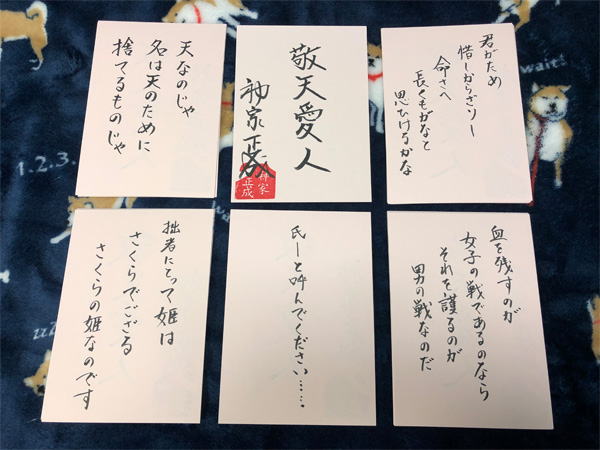 天なのじゃ
名は天のために
捨てるものじゃ
敬天愛人
神家正成
神家
正成
君がため
惜しからざりし
命さへ
長くもがなと
思ひけるかな
拙者にとって姫は
さくらでござる
さくらの姫なのです
氏ーと呼んでください……
血を残すのが
女子の戦であるのなら
それを護るのが
男の戦なのだ
wait!
1.2.3.
zzz
wait!